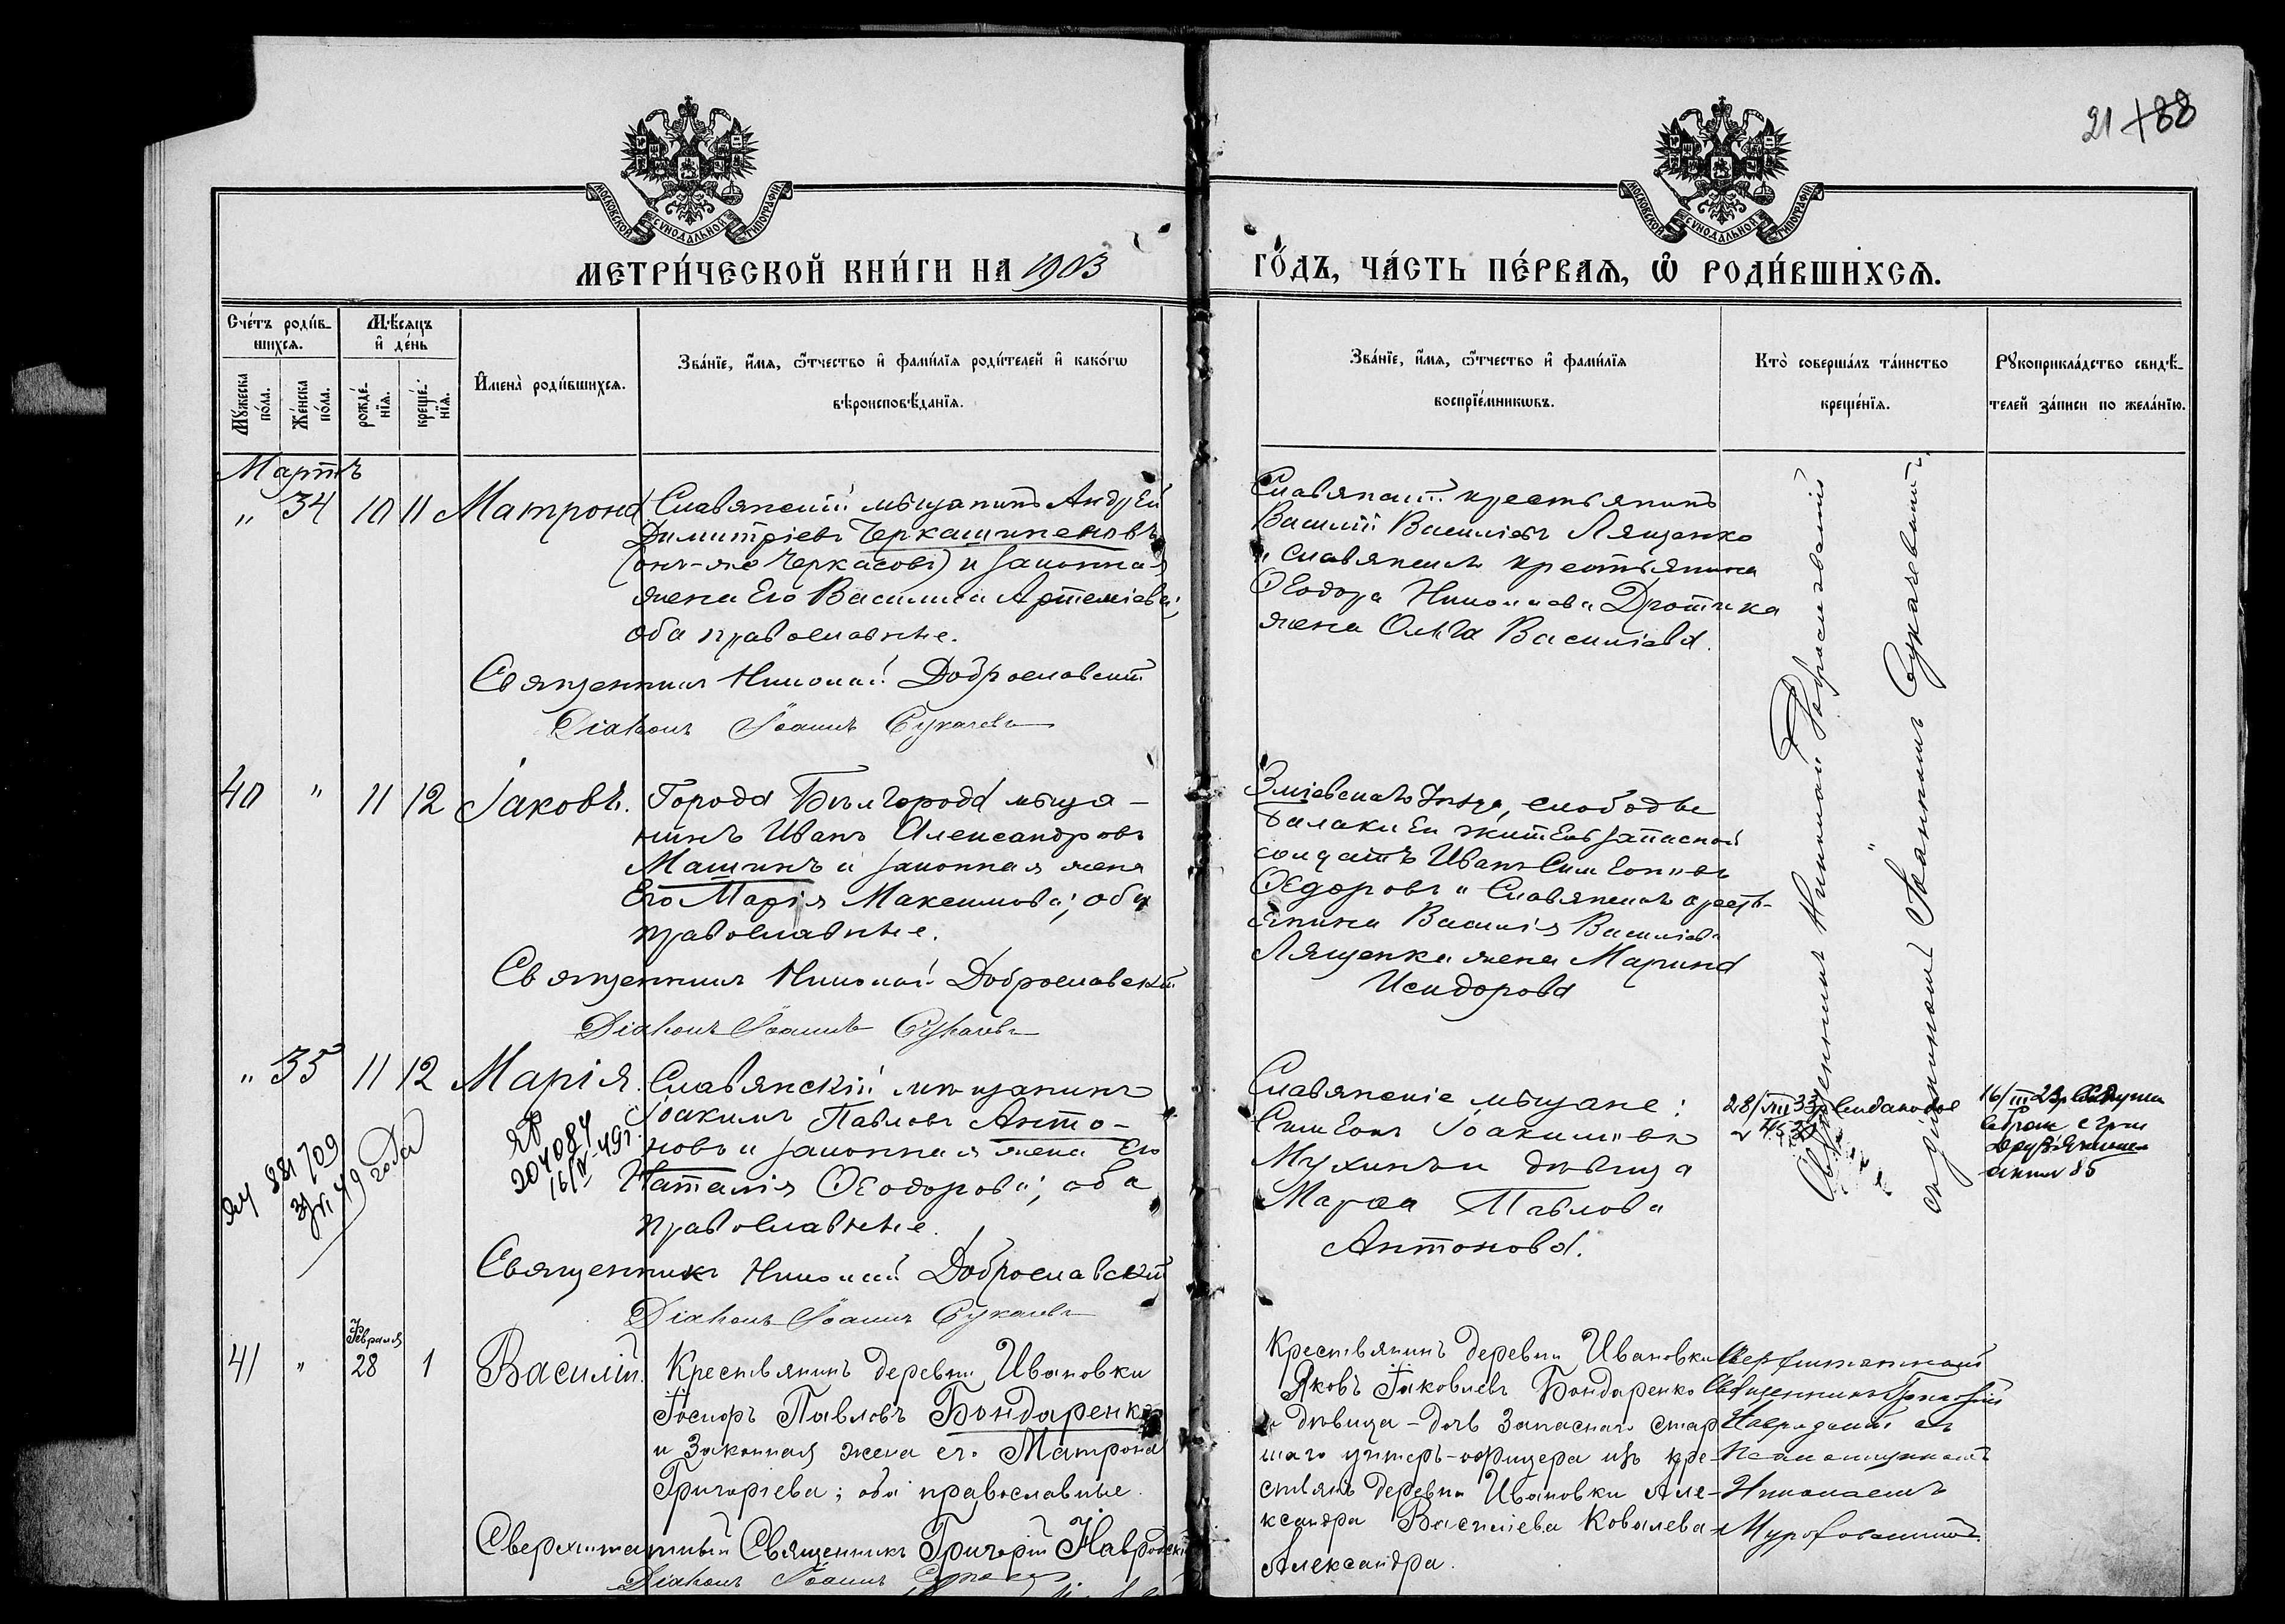 21 188
МОСКОВСКОЙ СУНОДАЛЬНОЙ ТИПОГРАФІИ
МОСКОВСКОЙ СУНОДАЛЬНОЙ ТИПОГРАФІИ
МЕТРИ́ЧЕСКОЙ КНИ́ГИ НА 1903
ГО́ДЪ, ЧА́СТЬ ПЕ́РВАѦ, Ѡ РОДИ́ВШИХСѦ.
Счетъ роди́в-
шихсѧ.
Мꙋжеска по́ла.
Же́нска по́ла.
Мѣ́сѧцъ
и де́нь
рожде́-
нїѧ.
креще́-
нїѧ.
Имена̀ роди́вшихсѧ.
Зва́нїе, и́мѧ, ѻ́тчество и фами́лїѧ роди́телей и како́гѡ
вѣроисповѣ́данїѧ.
Зва́нїе, и́мѧ, ѻ́тчество и фами́лїѧ
воспрїе́мникѡвъ.
Кто̀ соверша́лъ та́инство
креще́нїѧ.
Рꙋкоприкла́дство свидѣ́-
телей за́писи по жела́нїю.
Мартъ
" 34 10 11 Матрона
Славянскій мѣщанинъ Андрей
Димитріевъ Черкашиненовъ
(онъ-же Черкасовъ) и законная
жена Его Василиса Артеміева;
оба православные.
Священникъ Николай Доброславскій
Діаконъ Іоаннъ Сукачевъ
Славянскій крестьянинъ
Василій Василіевъ Лященко
и славянскаго крестьянина
Ѳеодора Николаева Дротика
жена Ольга Василіева.
Священникъ Николай Доброславскій
съ діакономъ Іоанномъ Сукачевымъ
40 " 11 12 Іаковъ.
Города Бѣлгорода мѣща-
нинъ Иванъ Александровъ
Машинъ и законная жена
Его Марія Максимова; оба
православные.
Священникъ Николай Доброславскій
Діаконъ Іоаннъ Сукачевъ
Зміевскаго Уѣзда, слободы
Балаклеи житель запасной
солдатъ Иванъ Симеоновъ
Ѳедоровъ и Славянскаго крестъ-
янина Василія Василіева
Лященка жена Марина
Исидорова
" 35 11 12 Марія.
Славянскій мѣщанинъ
Іоакимъ Павловъ Анто-
новъ и законная жена Его
Наталія Ѳеодорова; оба
православные.
204084
16/IV-49г.
881709
49 года
Священникъ Николай Доброславскій
Діаконъ Іоаннъ Сукачевъ
Славянскіе мѣщане:
Симеонъ Іоакимовъ
Мухинъ и дѣвица
Марѳа Павлова
Антонова.
28/VIII 33
16/III 23
41 " Февраля 28 1 Василій.
Крестьянинъ деревни Ивановки
Іосифъ Павловъ Бондаренко
и законная жена его Матрона
Григоріева; оба православные.
Сверхштатный Священникъ Григорій Навродскій
Діаконъ Іоаннъ Сукачевъ
Крестьянинъ деревни Ивановки
Яковъ Іаковлевъ Бондаренко
и дѣвица-дочь запаснаго стар-
шаго унтеръ-офицера изъ кре-
стьянъ деревни Ивановки Але-
ксандра Василіева Ковалева
Александра.
Сверхштатный
Священникъ Григорій
Навродскій съ
псаломщикомъ
Николаемъ